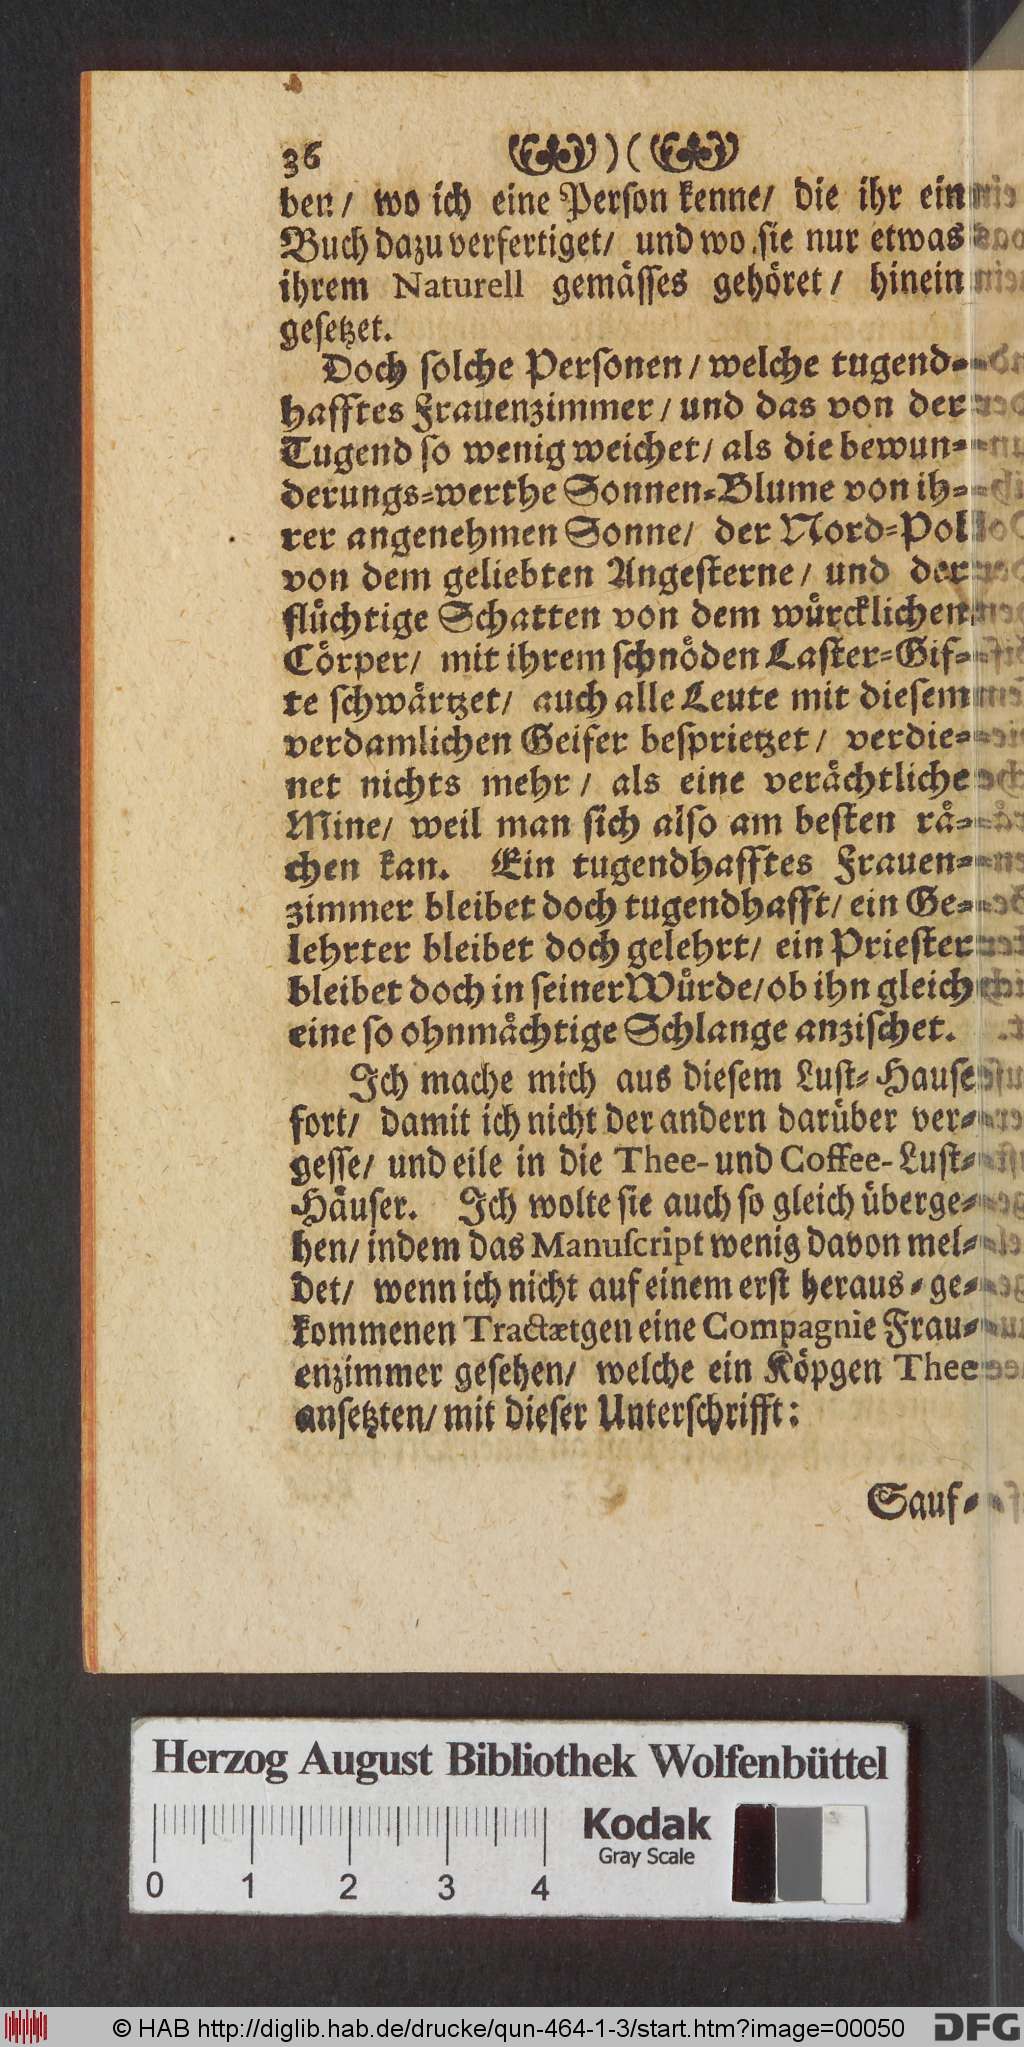 36 )(
ben / wo ich eine Person kenne / die ihr ein
Buch dazu verfertiget / und wo sie nur etwas
ihrem Naturell gemåsses gehöret / hinein
gesetzet.
Doch solche Personen / welche tugend-
hafftes Frauenzimmer / und das von der
Tugend so wenig weichet / als die bewun-
derungs-werthe Sonnen-Blume von ih-
rer angenehmen Sonne / der Nord-Pol
von dem geliebten Angesterne / und der
flüchtige Schatten von dem würcklichen
Cörper / mit ihrem schnöden Laster-Gif-
te schwårtzet / auch alle Leute mit diesem
verdamlichen Geifer besprietzet / verdie-
net nichts mehr / als eine veråchtliche
Mine / weil man sich also am besten rå-
chen kan. Ein tugendhafftes Frauen-
zimmer bleibet doch tugendhafft / ein Ge-
lehrter bleibet doch gelehrt / ein Priester
bleibet doch in seiner Würde / ob ihn gleich
eine so ohnmåchtige Schlange anzischet.
Ich mache mich aus diesem Lust-Hause
fort / damit ich nicht der andern darüber ver-
gesse / und eile in die Thee- und Coffee-Lust-
Håuser. Ich wolte sie auch so gleich überge-
hen / indem das Manuscript wenig davon mel-
det / wenn ich nicht auf einem erst heraus-ge-
kommenen Tractætgen eine Compagnie Frau-
enzimmer gesehen / welche ein Köpgen Thee
ansetzten / mit dieser Unterschrifft:
Sauf-
Herzog August Bibliothek Wolfenbüttel
Kodak
Gray Scale
0 1 2 3 4
© HAB http://diglib.hab.de/drucke/qun-464-1-3/start.htm?image=00050
DFG